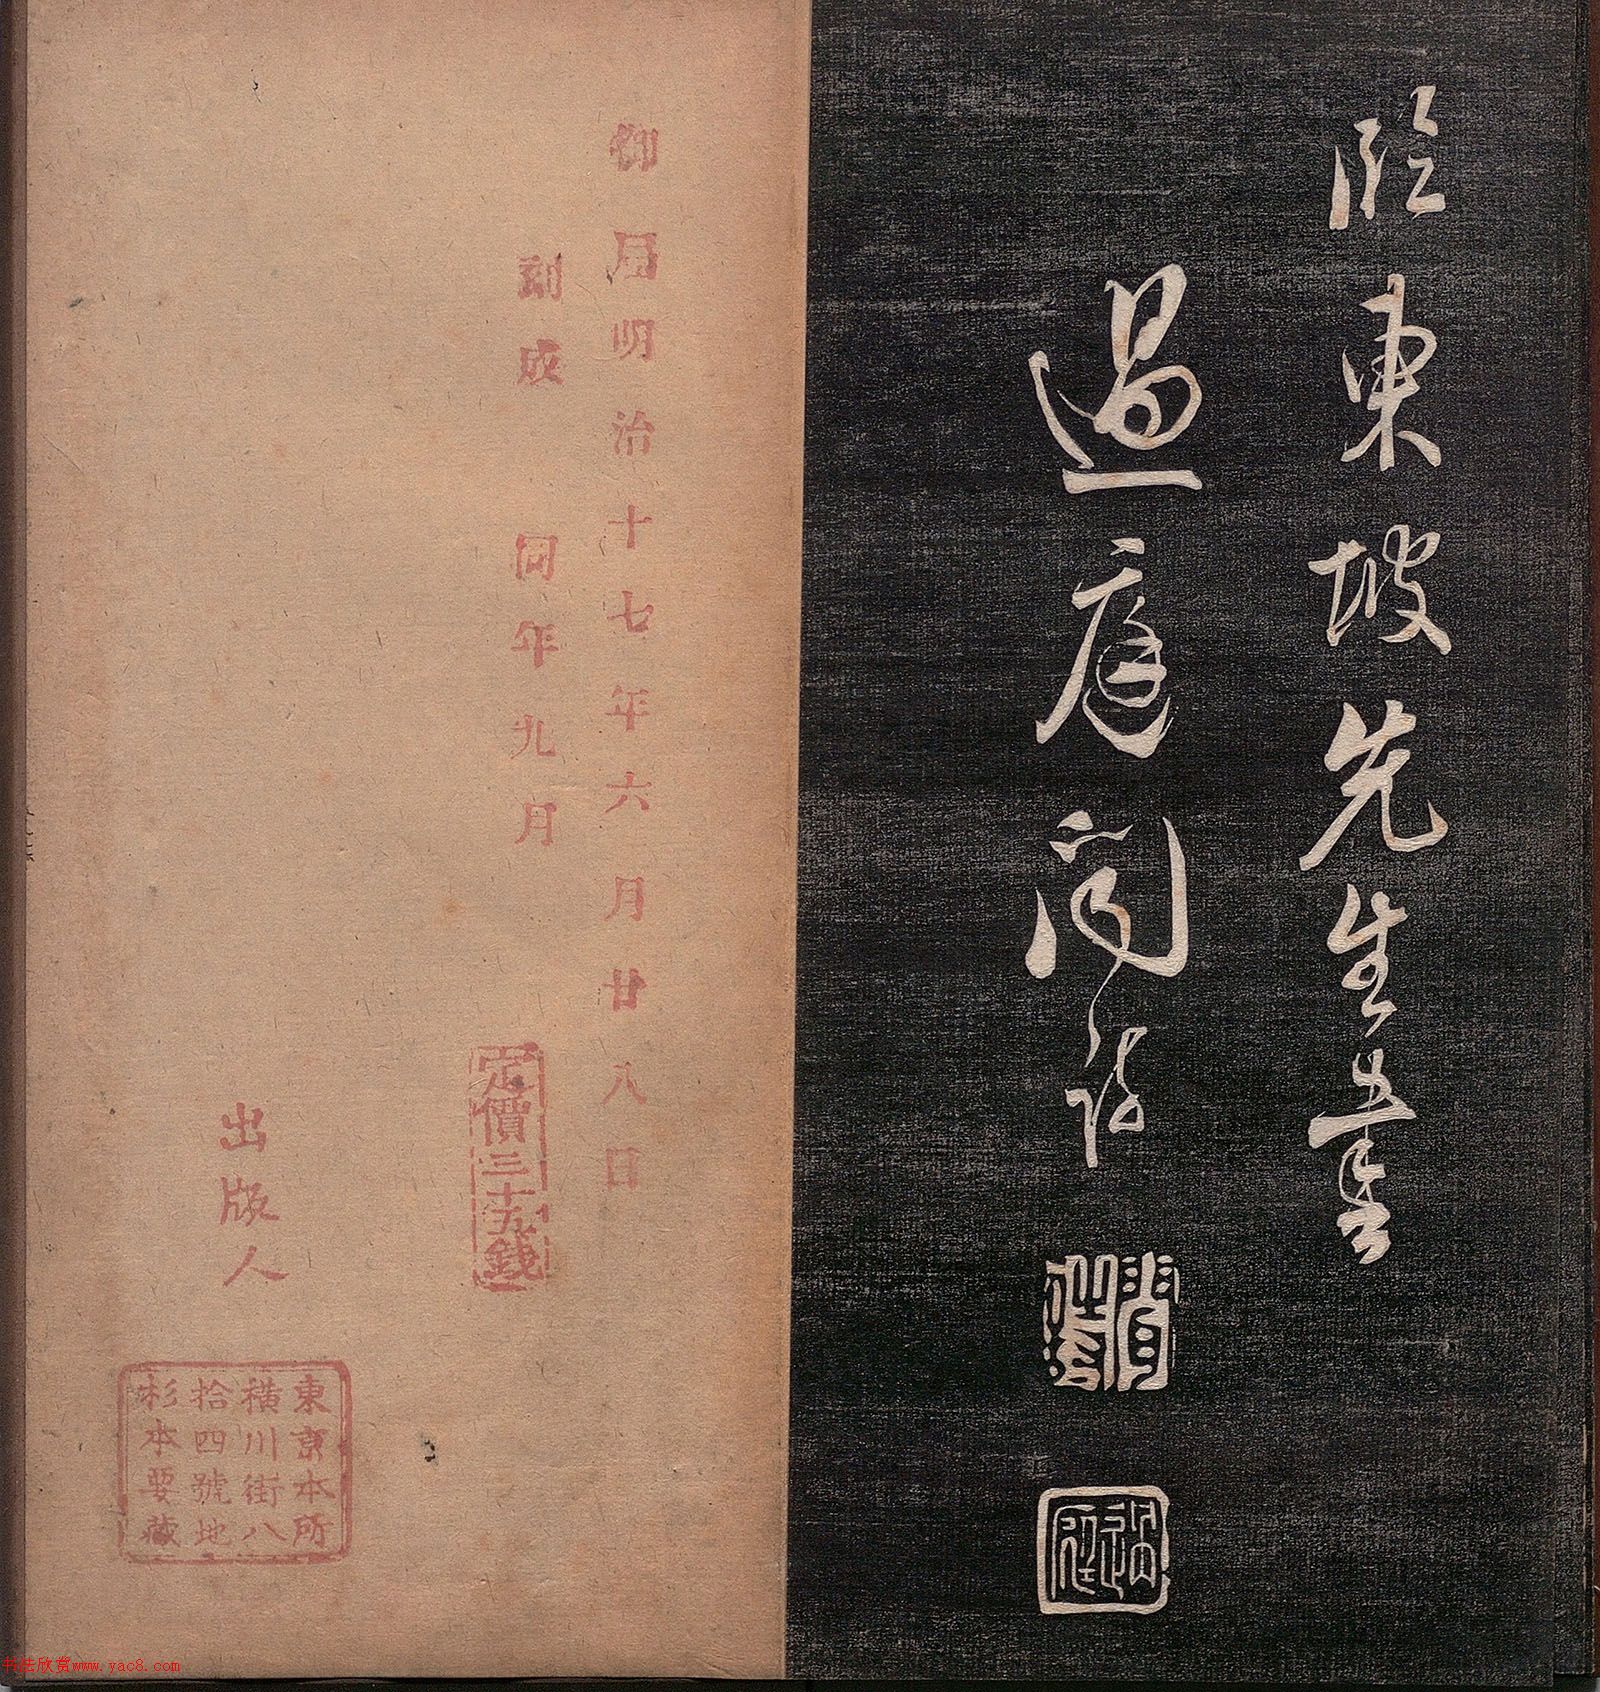 臨東坡先生書
過庭聞詩
御届明治十七年六月廿八日
刻成　同年九月
定價三十五錢
出版人
東京本所
横川街八
拾四號地
杉本要藏
书法欣赏www.yac8.com